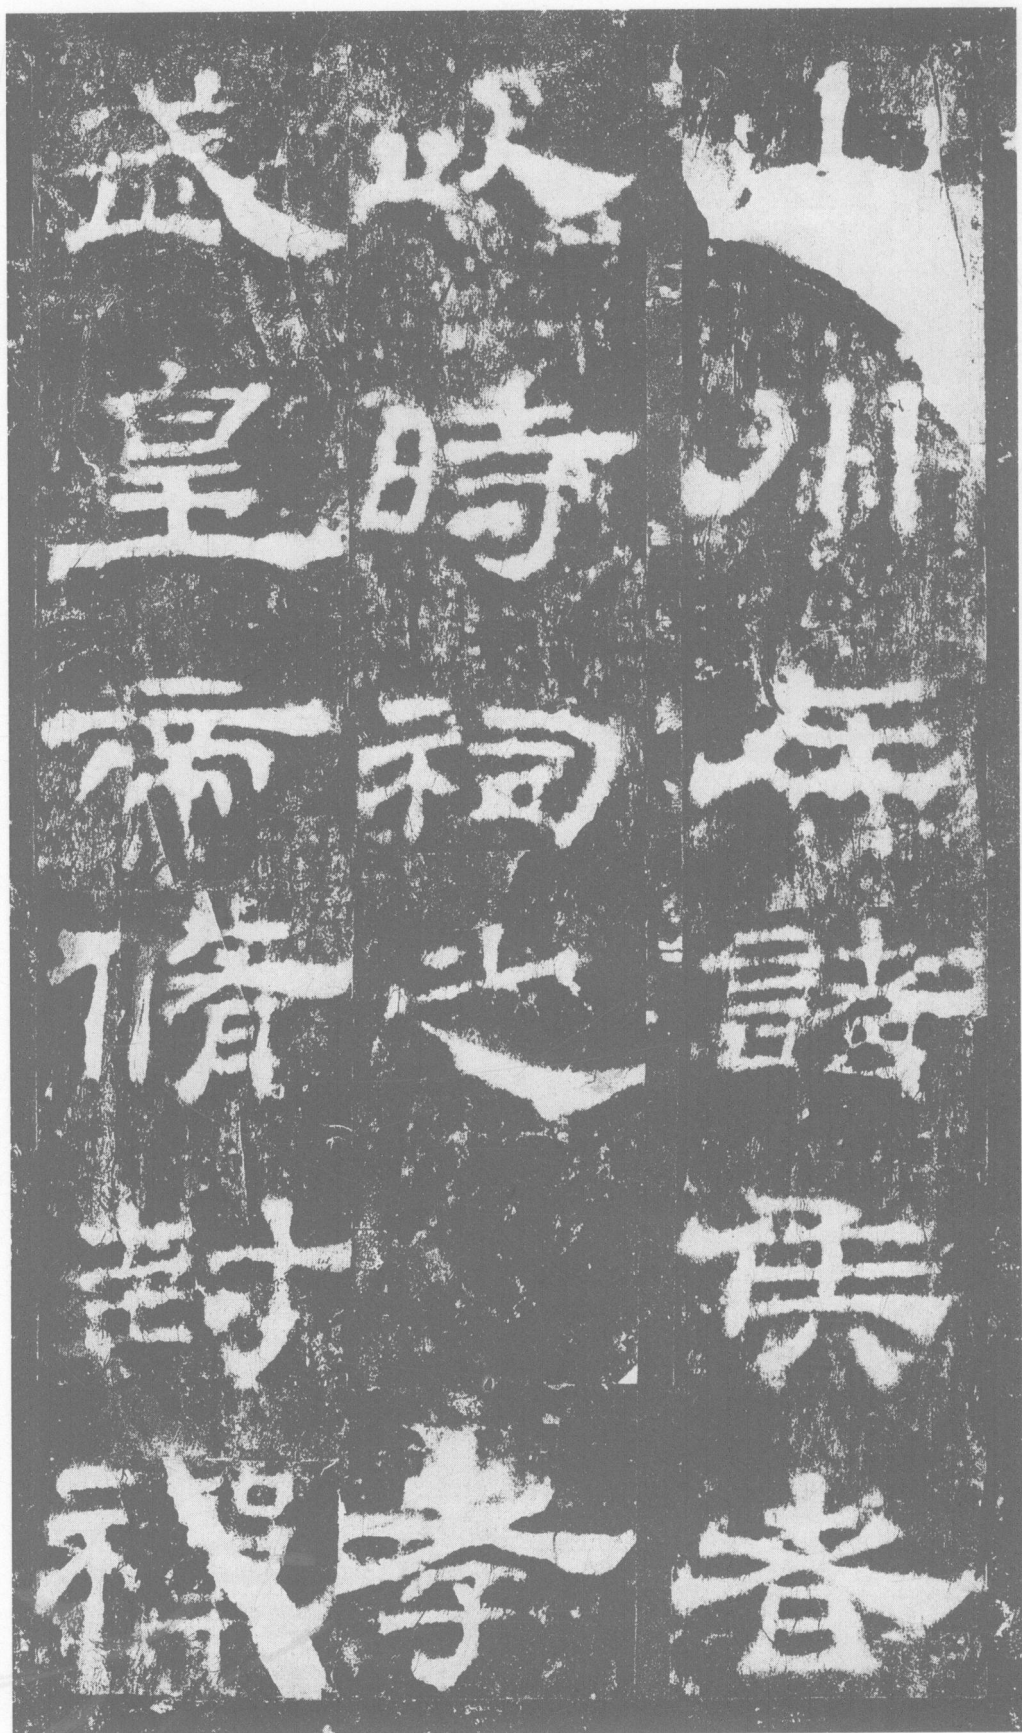 山川年諸侯者
以時祠之孝
武皇帝脩封禪